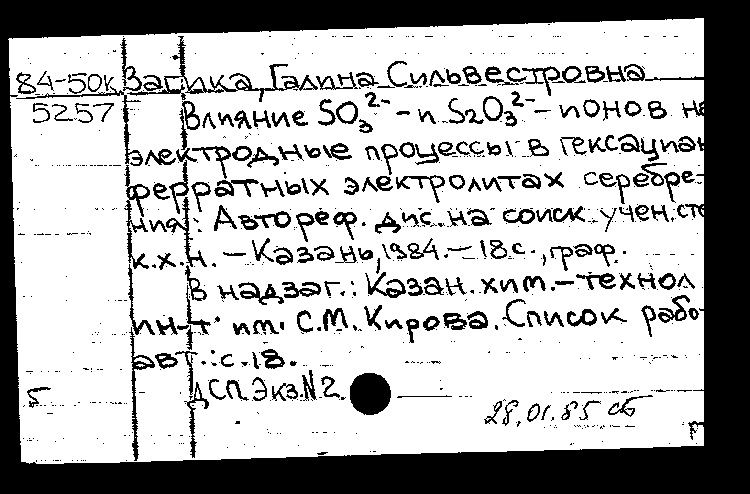 84-50к Вагика, Галина Сильвестровна
5257 Влияние SO₃²⁻ - и S₂O₃²⁻ - ионов на
электродные процессы в гексациан
ферратных электролитах серебре-
ния: Автореф. дис. на соиск. учен. сте
к.х.н. - Казань, 1984. - 18 с., граф.
В надзаг.: Казан. хим.-технол
ин-т им. С.М. Кирова. Список работ
авт.: с. 18.
5 ДСП. Экз. N2
28.01.85 сб